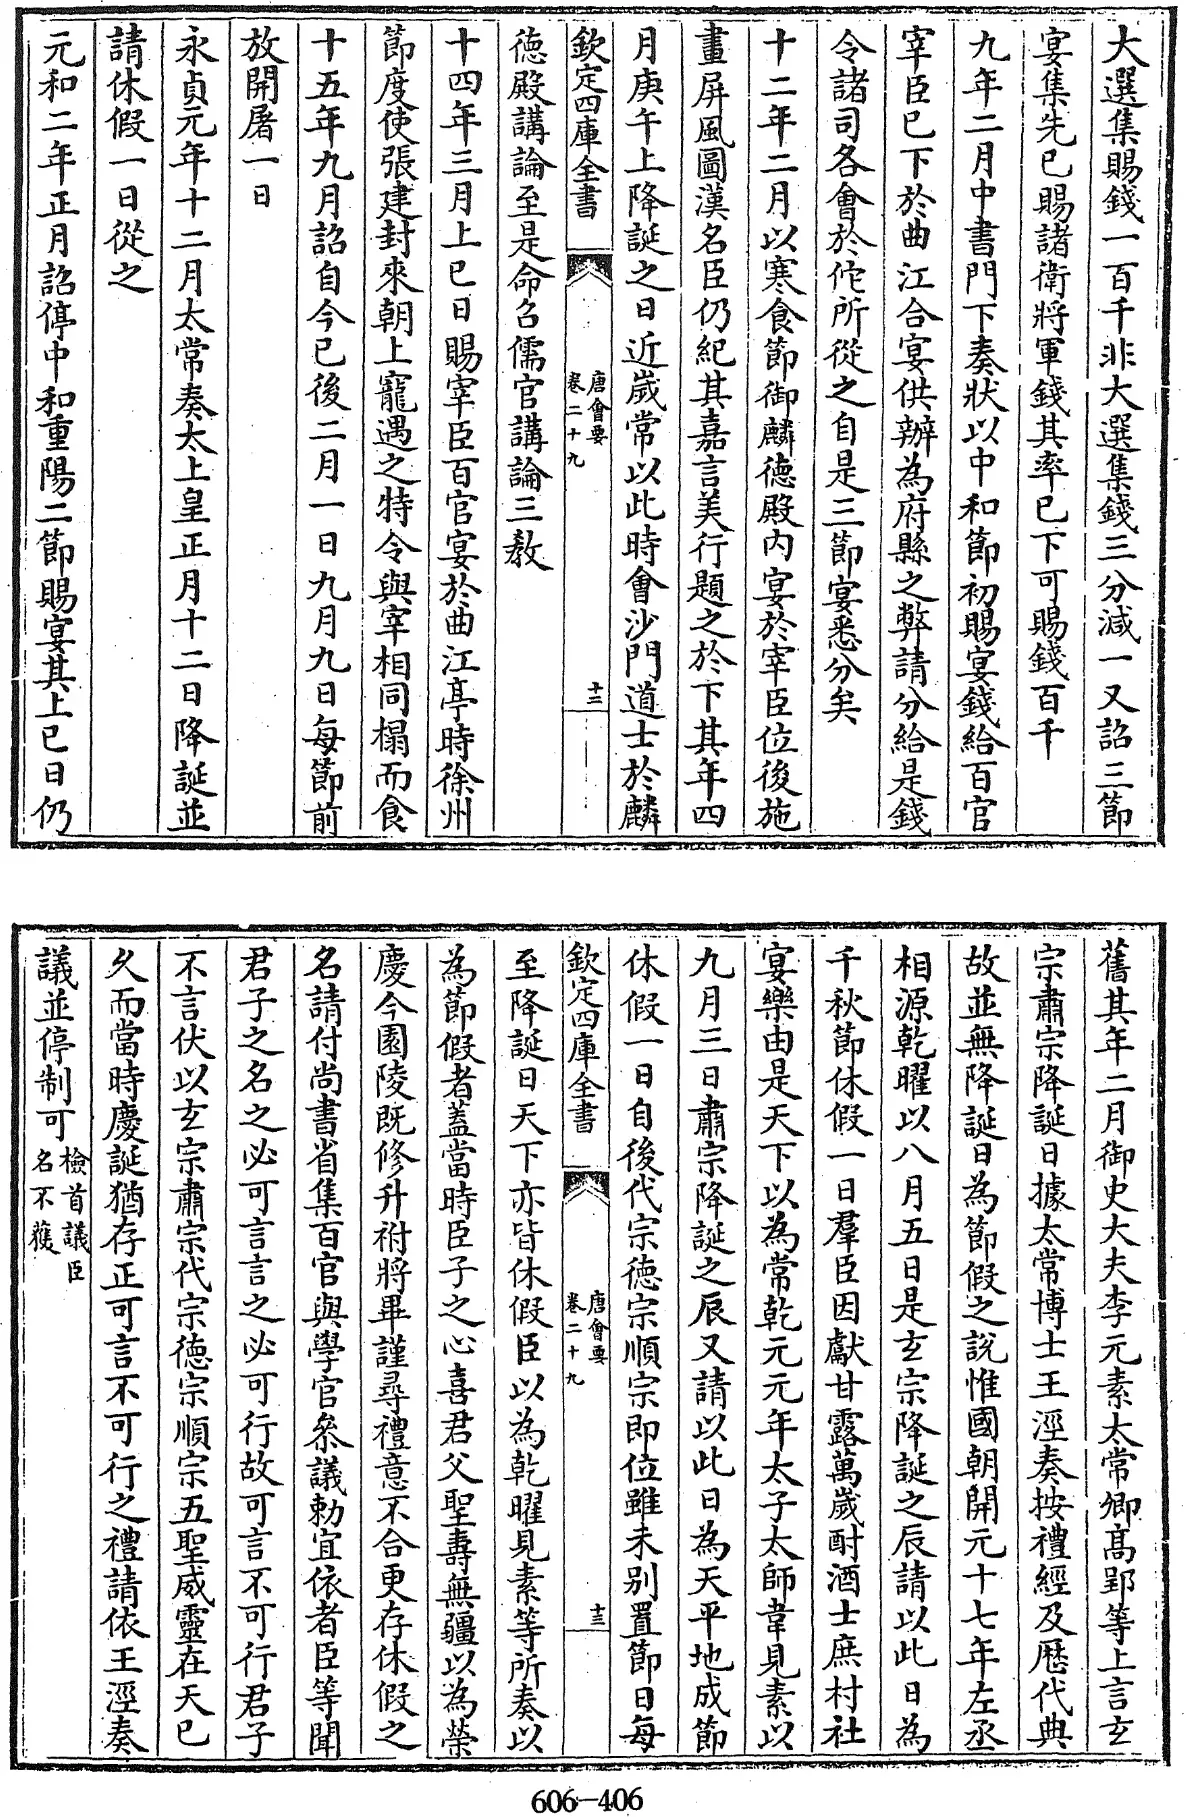 大選集賜錢一百千非大選集錢三分減一又詔三節
宴集先已賜諸衛將軍錢其率已下可賜錢百千
九年二月中書門下奏狀以中和節初賜宴錢給百官
宰臣已下於曲江合宴供辦為府縣之弊請分給是錢
令諸司各會於佗所從之自是三節宴悉分矣
十二年二月以寒食節御麟德殿内宴於宰臣位後施
畫屏風圖漢名臣仍紀其嘉言美行題之於下其年四
月庚午上降誕之日近嵗常以此時會沙門道士於麟
欽定四庫全書
唐會要
卷二十九
十三
德殿講論至是命召儒官講論三教
十四年三月上巳日賜宰臣百官宴於曲江亭時徐州
節度使張建封來朝上寵遇之特令與宰相同榻而食
十五年九月詔自今已後二月一日九月九日每節前
放開屠一日
永貞元年十二月太常奏太上皇正月十二日降誕並
請休假一日從之
元和二年正月詔停中和重陽二節賜宴其上巳日仍
舊其年二月御史大夫李元素太常卿髙郢等上言玄
宗肅宗降誕日據太常博士王涇奏按禮經及歴代典
故並無降誕日為節假之説惟國朝開元十七年左丞
相源乾曜以八月五日是玄宗降誕之辰請以此日為
千秋節休假一日羣臣因獻甘露萬嵗酎酒士庶村社
宴樂由是天下以為常乾元元年太子太師韋見素以
九月三日肅宗降誕之辰又請以此日為天平地成節
休假一日自後代宗德宗順宗即位雖未别置節日每
欽定四庫全書
唐會要
卷二十九
十三
至降誕日天下亦皆休假臣以為乾曜見素等所奏以
為節假者蓋當時臣子之心喜君父聖壽無疆以為榮
慶今園陵既修升祔將畢謹尋禮意不合更存休假之
名請付尚書省集百官與學官叅議勅宜依者臣等聞
君子之名之必可言言之必可行故可言不可行君子
不言伏以玄宗肅宗代宗德宗順宗五聖威靈在天已
久而當時慶誕猶存正可言不可行之禮請依王涇奏
議並停制可檢首議臣
名不獲
606-406